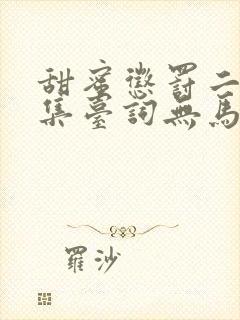 甜蜜懲罰二
集臺詞無馬
羅沙